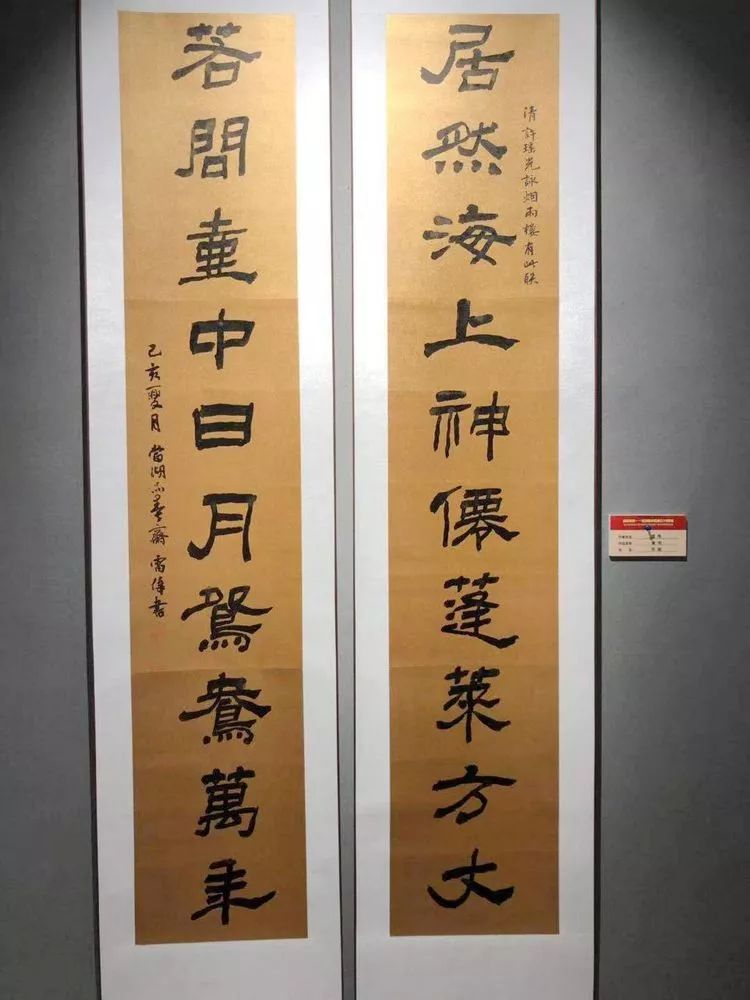 居然海上神僊蓬萊方丈
清許瑤光詠烟雨樓有此联
若問壷中日月鴛鴦萬年
己亥夏月當湖
雷偉書